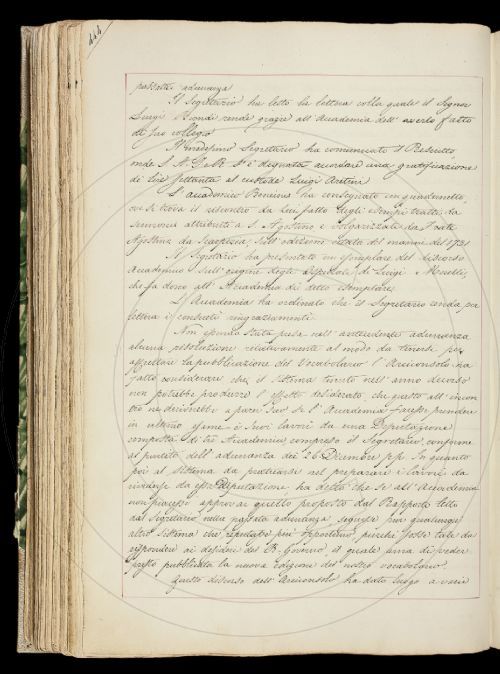 444
passata adunanza
Il Segretario ha letto la lettera colla quale il Signor
Luigi Biondi rende grazie all'Accademia dell'averlo fatto
di suo collegio
Il medesimo Segretario ha comunicato il Rescritto
onde S. A. I. e R. si è degnata accordare una gratificazione
di lire settanta al custode Luigi Aretini
L'accademico Bencini ha consegnato un quadernetto,
ove si trova il riscontro da lui fatto degli esempi tratti da
Sermoni attribuiti a S. Agostino e volgarizzati da Frate
Agostino da Scarperia, sull'edizione citata del Manni del 1731
Il Segretario ha presentato un esemplare del discorso
Accademico sull'origine degli di Luigi Minelli,
che fa dono all'Accademia di detto esemplare
L'Accademia ha ordinato che il Segretario renda per
lettera i consueti ringraziamenti.
Non essendo stata presa nell'antecedente adunanza
alcuna risoluzione relativamente al modo da tenersi per
affrettare la pubblicazione del Vocabolario l'Arciconsolo ha
fatto considerare che il sistema tenuto nell'anno decorso
non potrebbe produrre l'effetto desiderato, che questo all'incon
tro ne deriverebbe a parer suo se l'Accademia facesse prendere
in esame i suoi lavori da una Deputazione
composta di tre Accademici compreso il Segretario, conforme
al partito dell'adunanza dei 26 Dicembre p.p. In quanto
poi al sistema da praticarsi nel preparare i lavori da
rivedersi da essa Deputazione ha detto che se all'Accademia
non piacesse approvar quello proposto dal Rapporto letto
dal Segretario nella passata adunanza, seguisse pur qualunque
altro sistema che reputasse più opportuno, purché fosse tale da
rispondere ai desideri del R. Governo il quale ama di veder
presto pubblicata la nuova edizione del nostro vocabolario.
Questo discorso dell'Arciconsolo ha dato luogo a varie